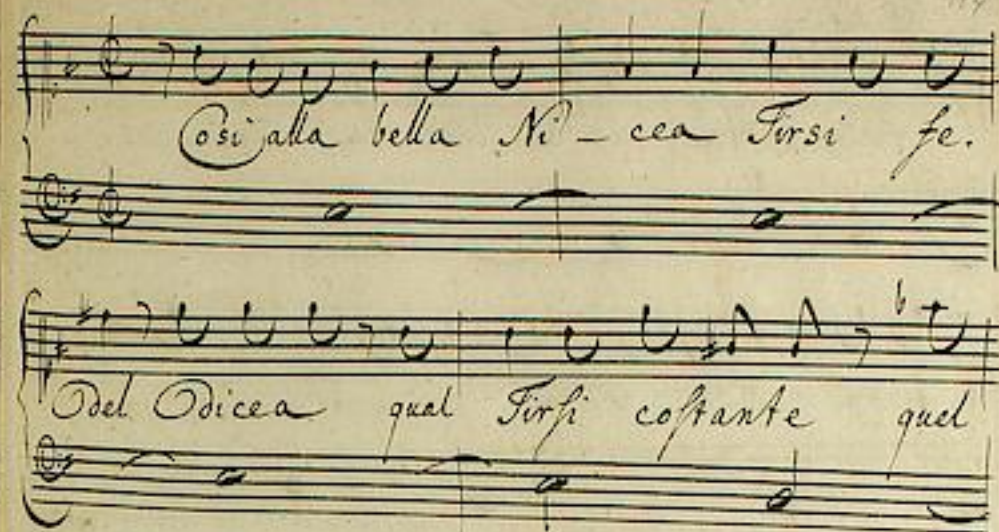 Cosi alla bella Ni – cea Tirsi fe.
del Odicea qual Tirſi coſtante quel